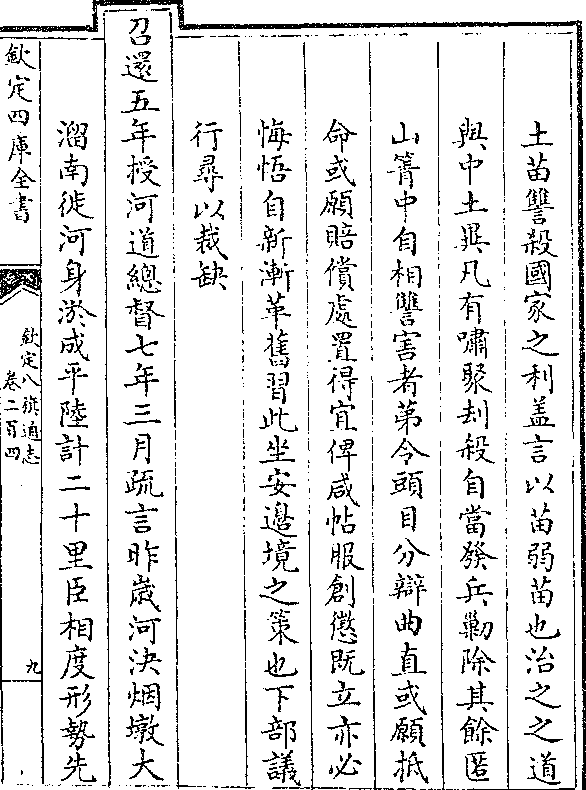 土苗讐殺國家之利盖言以苗弱苗也治之之道
與中土異凡有嘯聚刦殺自當發兵勦除其餘匿
山箐中自相讐害者第令頭目分辯曲直或願抵
命或願賠償處置得宜俾咸帖服創懲既立亦必
悔悟自新漸革舊習此坐安邉境之策也下部議
行尋以裁缺
召還五年授河道總督七年三月疏言昨嵗河決烟墩大
溜南徙河身淤成平陸計二十里臣相度形勢先
欽定四庫全書
欽定八旗通志
卷二百四
九